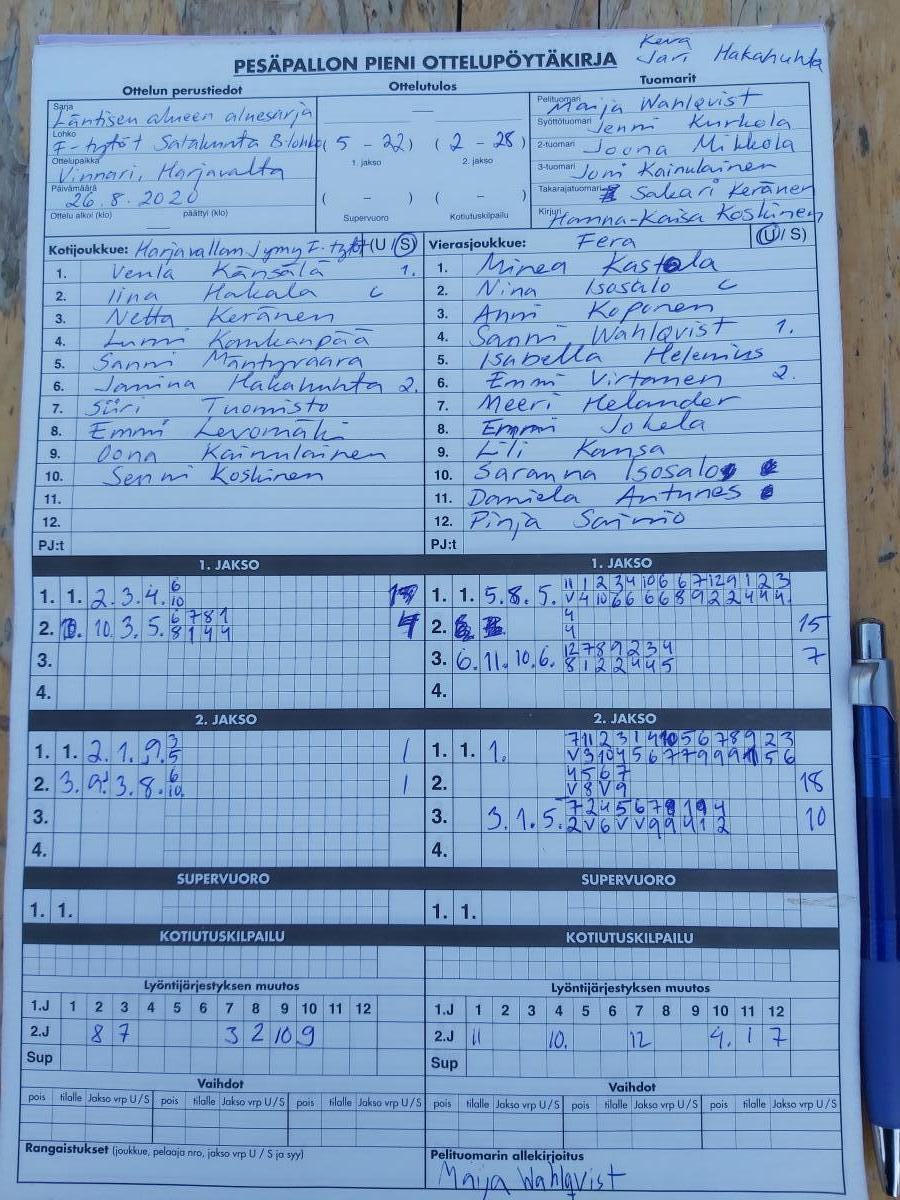 Kera
PESÄPALLON PIENI OTTELUPÖYTÄKIRJA Jari Hakahuhta
Ottelun perustiedot
Ottelutulos
Tuomarit
Sarja
Läntisen alueen aluesarja
Lohko
F-tytöt Satakunta B-lohko
Ottelupaikka
Vinnari, Harjavalta
Päivämäärä
26.8.2020
Ottelu alkoi (klo) päättyi (klo)
( 5 - 22 ) ( 2 - 28 )
1. jakso 2. jakso
( - ) ( - )
Supervuoro Kotiutuskilpailu
Pelituomari Maija Wahlqvist
Syöttötuomari Jenni Kurkela
2-tuomari Joona Mikkola
3-tuomari Joni Kainulainen
Takarajatuomari Sakari Keränen
Kirjuri Hanna-Kaisa Koskinen
Kotijoukkue: Harjavallan Jymy F-tytöt (U / S)
1. Venla Känsälä 1.
2. Iina Hakala C
3. Netta Keränen
4. Lumi Kankaanpää
5. Sanni Mäntyvaara
6. Janina Hakahuhta 2.
7. Siiri Tuomisto
8. Emmi Levomäki
9. Oona Kainulainen
10. Senni Koskinen
11.
12.
PJ:t
Vierasjoukkue: Fera (U / S)
1. Minea Kastola
2. Nina Isosalo C
3. Anni Koponen
4. Sanni Wahlqvist 1.
5. Isabella Helenius
6. Emmi Virtanen 2.
7. Meeri Helander
8. Emmi Jokela
9. Lili Kansa
10. Saranna Isosalo
11. Daniela Antunes
12. Pinja Saimio
PJ:t
1. JAKSO
1. 1. 2. 3. 4. 6
10
2. 10. 3. 5. 6 7 8 1
8 1 4 4 4
3.
4.
1. JAKSO
1. 1. 5. 8. 5. 11 1 2 3 4 10 6 6 7 12 9 1 2 3
V 4 10 6 6 6 6 8 9 2 2 4 4 4
2. 4
4 15
3. 6. 11. 10. 6. 12 7 8 9 2 3 4
8 1 2 2 4 4 5 7
4.
2. JAKSO
1. 1. 2. 1. 9. 3
5 1
2. 3. 9. 3. 8. 6
10 1
3.
4.
2. JAKSO
1. 1. 1. 7 11 2 3 1 4 10 5 6 7 8 9 2 3
V 3 10 4 5 6 7 7 9 9 9 5 6
2. 4 5 6 7
V 8 V 9 18
3. 3. 1. 5. 7 2 4 5 6 7 8 1 9 4
2 V 6 V V 9 9 4 1 2 10
4.
SUPERVUORO
1. 1.
SUPERVUORO
1. 1.
KOTIUTUSKILPAILU
KOTIUTUSKILPAILU
Lyöntijärjestyksen muutos
1.J 1 2 3 4 5 6 7 8 9 10 11 12
2.J 8 7 3 2 10 9
Sup
Lyöntijärjestyksen muutos
1.J 1 2 3 4 5 6 7 8 9 10 11 12
2.J 11 10. 12 4. 1 7
Sup
Vaihdot
pois tilalle Jakso vrp U / S pois tilalle Jakso vrp U / S pois tilalle Jakso vrp U / S
Vaihdot
pois tilalle Jakso vrp U / S pois tilalle Jakso vrp U / S pois tilalle Jakso vrp U / S
Rangaistukset (joukkue, pelaaja nro, jakso vrp U / S ja syy)
Pelituomarin allekirjoitus
Maija Wahlqvist